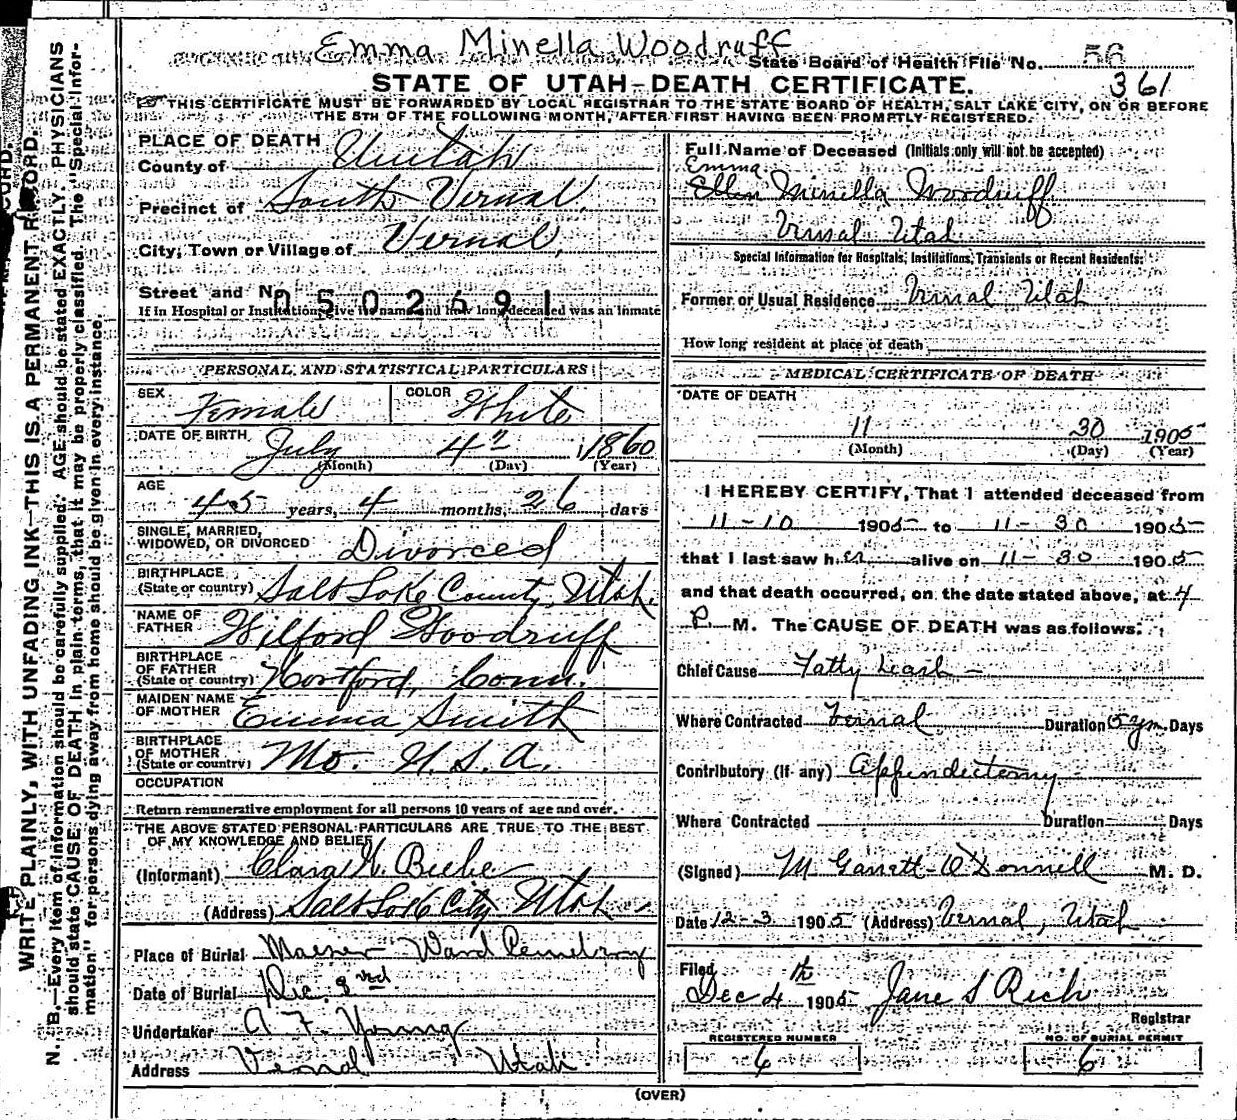 Emma Minella Woodruff
State Board of Health File No. 56
361
STATE OF UTAH-DEATH CERTIFICATE.
THIS CERTIFICATE MUST BE FORWARDED BY LOCAL REGISTRAR TO THE STATE BOARD OF HEALTH, SALT LAKE CITY, ON OR BEFORE
THE 5TH OF THE FOLLOWING MONTH, AFTER FIRST HAVING BEEN PROMPTLY REGISTERED.
WRITE PLAINLY, WITH UNFADING INK—THIS IS A PERMANENT RECORD.
N. B.—Every item of information should be carefully supplied. AGE should be stated EXACTLY. PHYSICIANS
should state CAUSE OF DEATH in plain terms, that it may be properly classified. The "Special Infor-
mation" for persons dying away from home should be given in every instance.
PLACE OF DEATH
County of Uintah
Precinct of South Vernal
City, Town or Village of Vernal,
Street and No.
0502691
If in Hospital or Institution, give its name and how long deceased was an inmate
PERSONAL AND STATISTICAL PARTICULARS
SEX Female COLOR White
DATE OF BIRTH July 4th 1860
(Month) (Day) (Year)
AGE 45 years, 4 months, 26 days
SINGLE, MARRIED,
WIDOWED, OR DIVORCED Divorced
BIRTHPLACE
(State or country) Salt Lake County, Utah.
NAME OF
FATHER Wilford Woodruff
BIRTHPLACE
OF FATHER
(State or country) Hortford, Conn.
MAIDEN NAME
OF MOTHER Emma Smith
BIRTHPLACE
OF MOTHER
(State or country) Mo. U.S.A.
OCCUPATION
Return remunerative employment for all persons 10 years of age and over.
THE ABOVE STATED PERSONAL PARTICULARS ARE TRUE TO THE BEST
OF MY KNOWLEDGE AND BELIEF
(Informant) Clara W. Beebe
(Address) Salt Lake City Utah
Place of Burial Maeser Ward Cemetery
Date of Burial Dec. 3rd
Undertaker A F. Young
Address Vernal Utah.
Full Name of Deceased (Initials only will not be accepted)
Emma
Ellen Minella Woodruff
Vernal Utah
Special Information for Hospitals, Institutions, Transients or Recent Residents:
Former or Usual Residence Vernal Utah
How long resident at place of death
MEDICAL CERTIFICATE OF DEATH
DATE OF DEATH
11 30 1905
(Month) (Day) (Year)
I HEREBY CERTIFY, That I attended deceased from
11-10 1905 to 11-30 1905
that I last saw h er alive on 11-30 1905
and that death occurred, on the date stated above, at 4
P. M. The CAUSE OF DEATH was as follows:
Chief Cause Fatty Heart
Where Contracted Vernal Duration 5 yrs Days
Contributory (if any) Appendectomy
Where Contracted Duration Days
(Signed) M Garrett-O'Donnell M. D.
Date 12-3 1905 (Address) Vernal, Utah
Filed
Dec 4th 1905 Jane S Rich
Registrar
REGISTERED NUMBER NO. OF BURIAL PERMIT
6 6
(OVER)